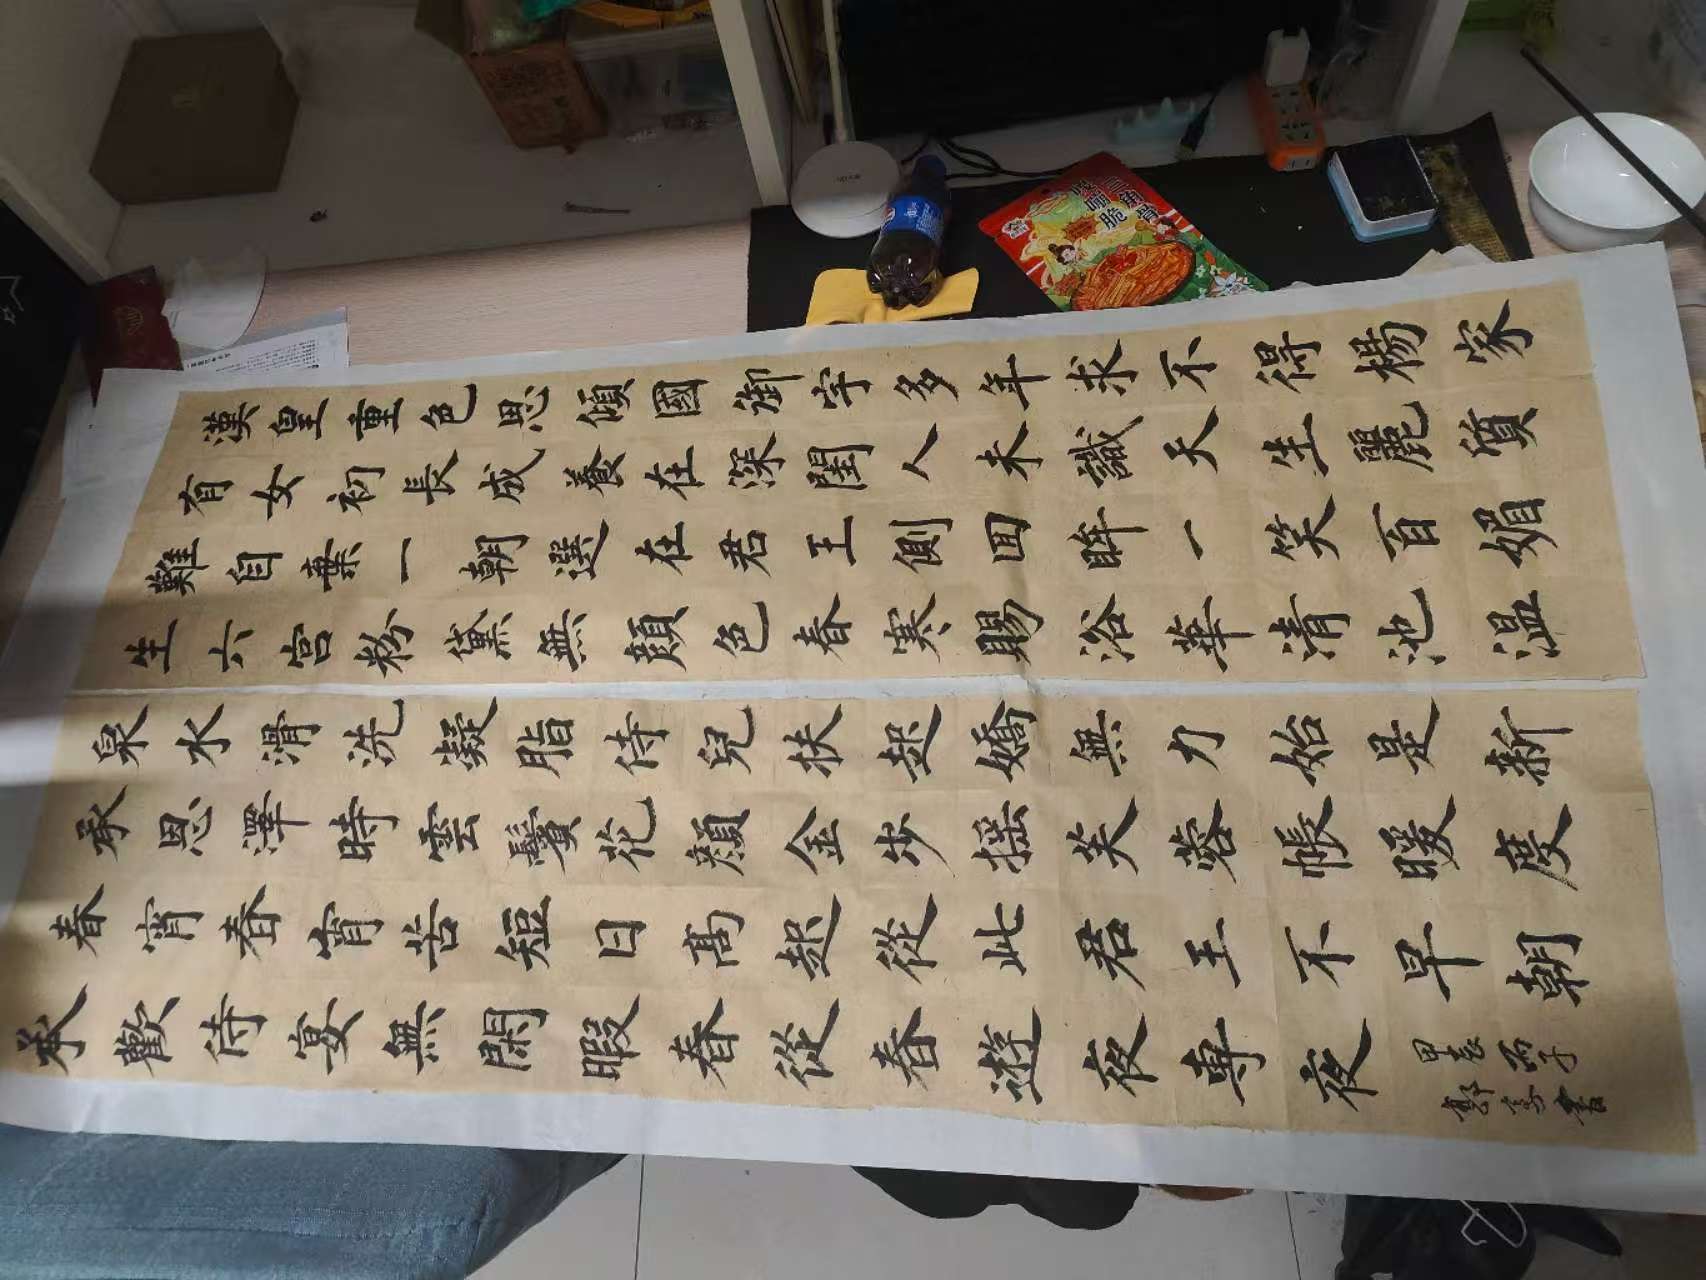 漢皇重色思傾國御宇多年求不得楊家
有女初長成養在深閨人未識天生麗質
難自棄一朝選在君王側回眸一笑百媚
生六宫粉黛無顔色春寒賜浴華清池温
泉水滑洗凝脂侍兒扶起嬌無力始是新
承恩澤時雲鬢花顔金步摇芙蓉帳暖度
春宵春宵苦短日高起從此君王不早朝
承歡侍宴無閑暇春從春遊夜專夜
甲辰丙子
鄭 書
三角骨
嘎嘣脆